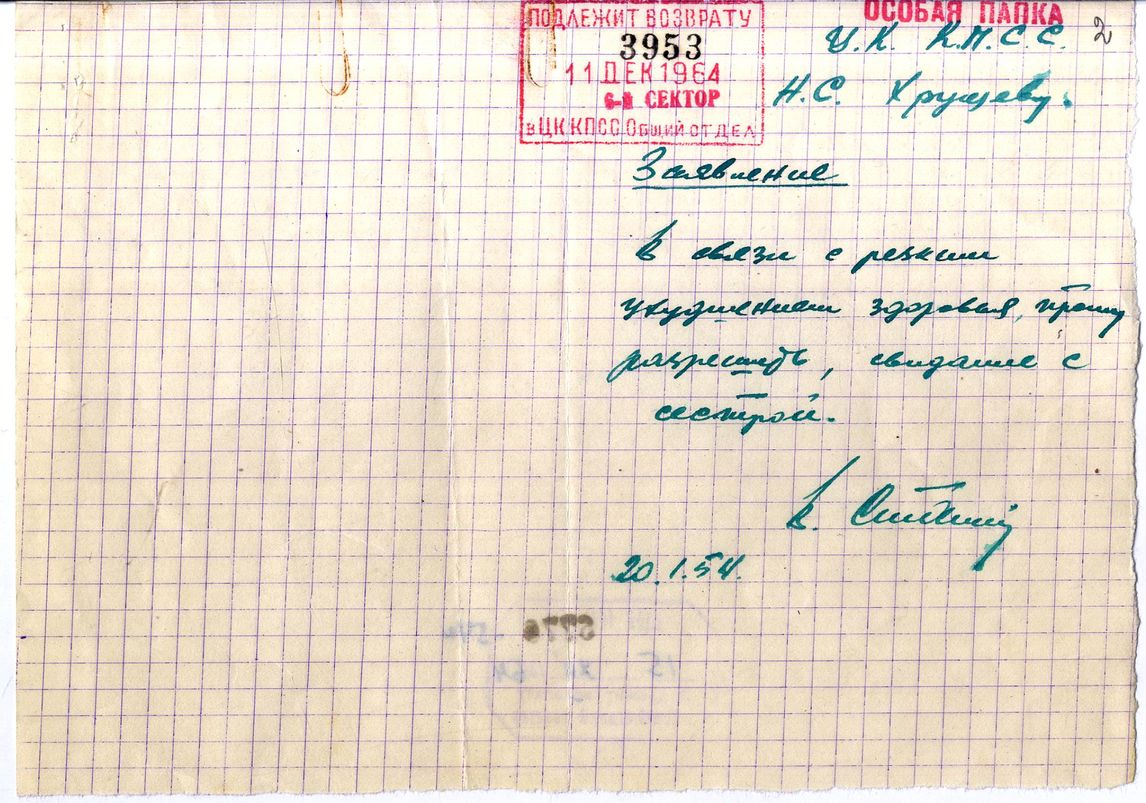 ОСОБАЯ ПАПКА
2
ПОДЛЕЖИТ ВОЗВРАТУ
3953
11 ДЕК 1964
6-й СЕКТОР
в ЦК КПСС Общий отдел
Ц.К. К.П.С.С.
Н.С. Хрущеву.
Заявление
В связи с резким
ухудшением здоровья, прошу
разрешить, свидание с
сестрой.
В. Сталин
20.1.54.